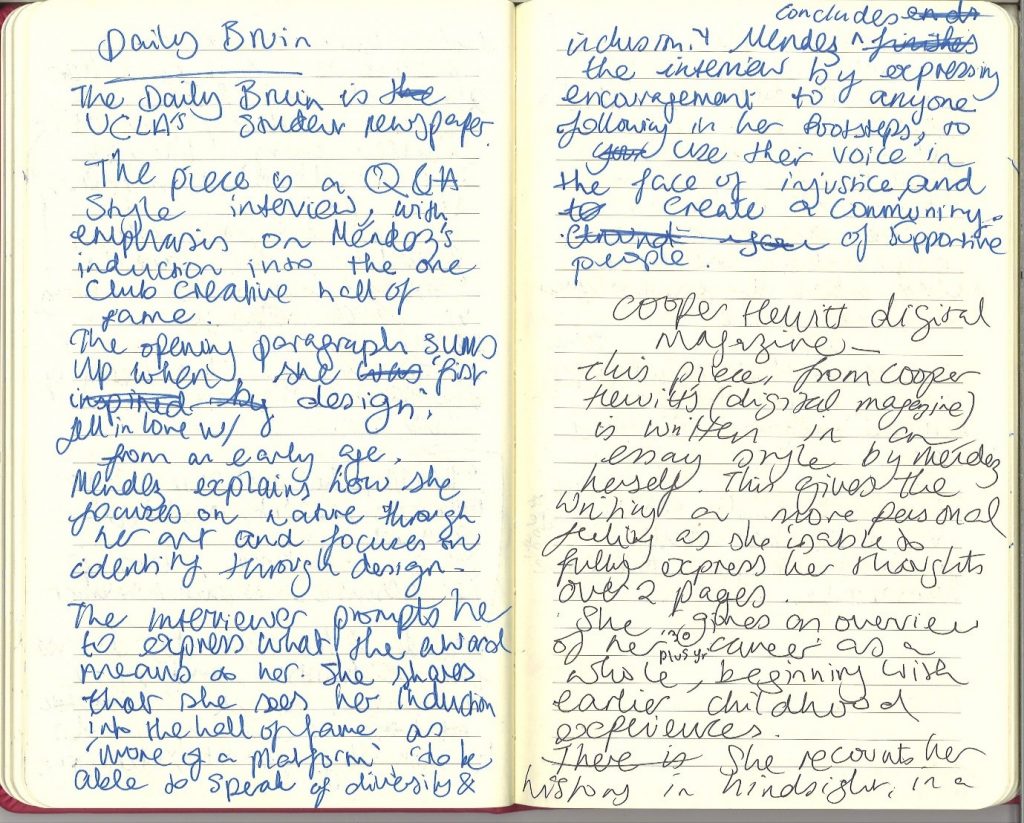 Daily Bruin
The Daily Bruin is the
UCLA's student newspaper.
The piece is a Q&A
style interview, with
emphasis on Méndez's
induction into the one
club creative hall of
fame.
The opening paragraph sums
up when she was first
inspired by design,
fell in love w/
from an early age.
Méndez explains how she
focuses on nature through
her art and focuses on
identity through design.
The interviewer prompts he
to express what the award
means to her. She shares
that she sees her induction
into the hall of fame as
'more of a platform' 'to be
able to speak of diversity &
concludes ends
inclusion.' Mendez ^ finishes
the interview by expressing
encouragement to anyone
following in her footsteps, to
your use their voice in
the face of injustice, and
to create a community.
around you of supportive
people.
Cooper Hewitt digital
Magazine -
This piece, from Cooper
Hewitt's (digital magazine)
is written in an
essay style by Mendez
herself. This gives the
writing a more personal
feeling as she is able to
fully express her thoughts
over 2 pages.
She gives an overview
of her 30 plus yr career as a
whole, beginning with
earlier childhood
experiences.
There is She recounts her
history in hindsight, in a